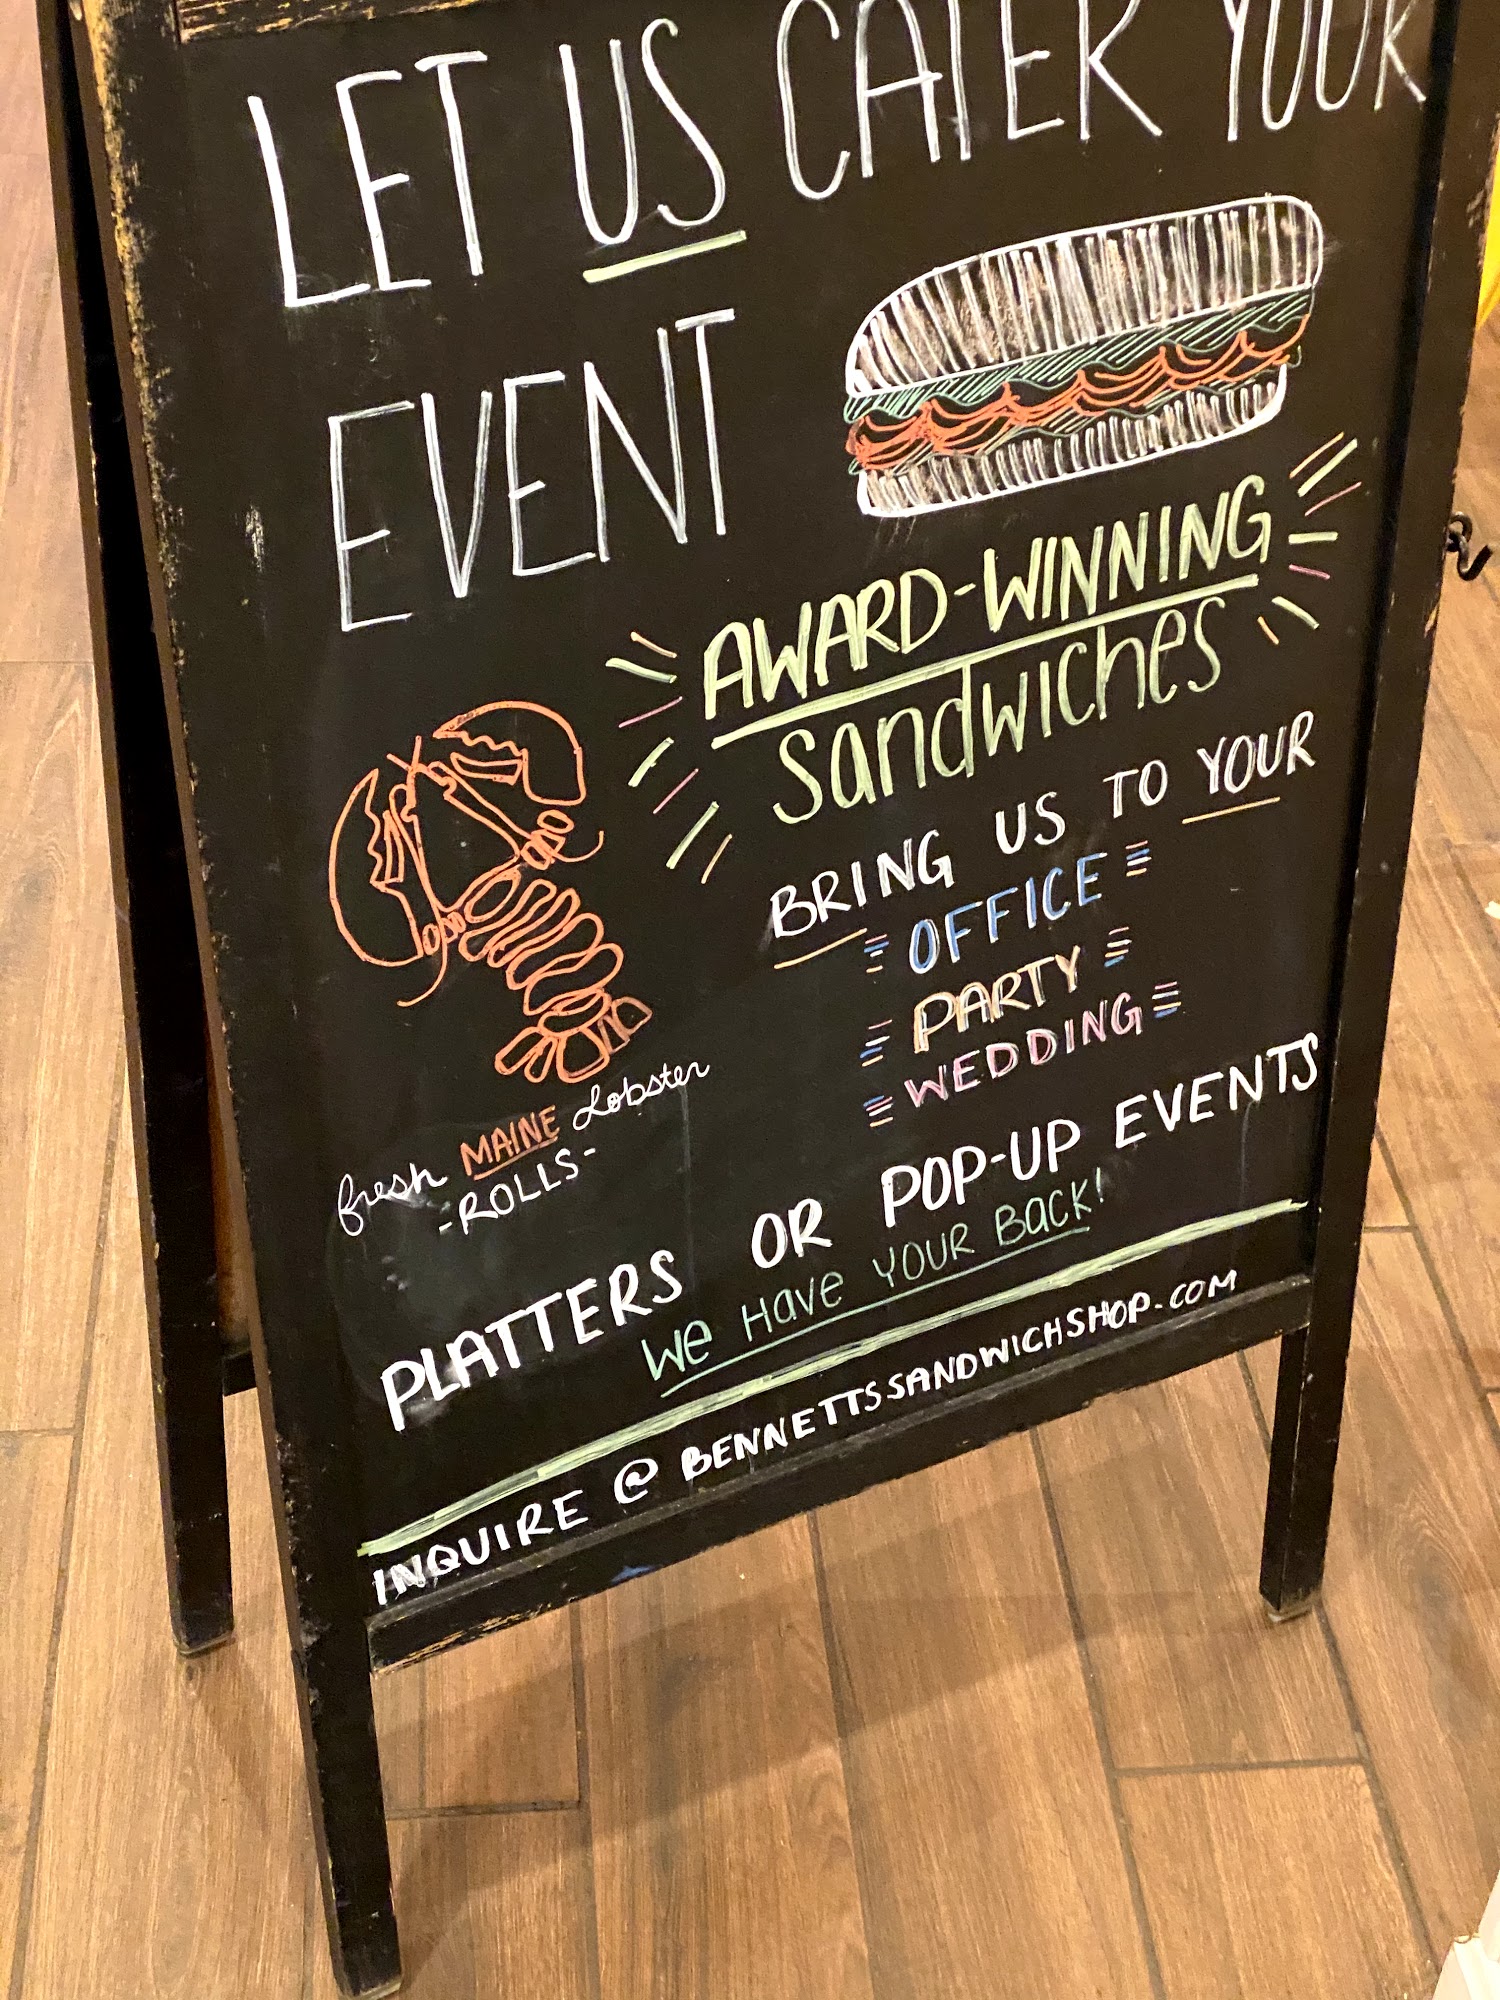 LET US CATER YOUR
EVENT
AWARD-WINNING
sandwiches
BRING US TO YOUR
OFFICE
PARTY
WEDDING
fresh MAINE Lobster
-ROLLS-
PLATTERS OR POP-UP EVENTS
We Have YOUR Back!
INQUIRE @ BENNETTSSANDWICHSHOP.COM